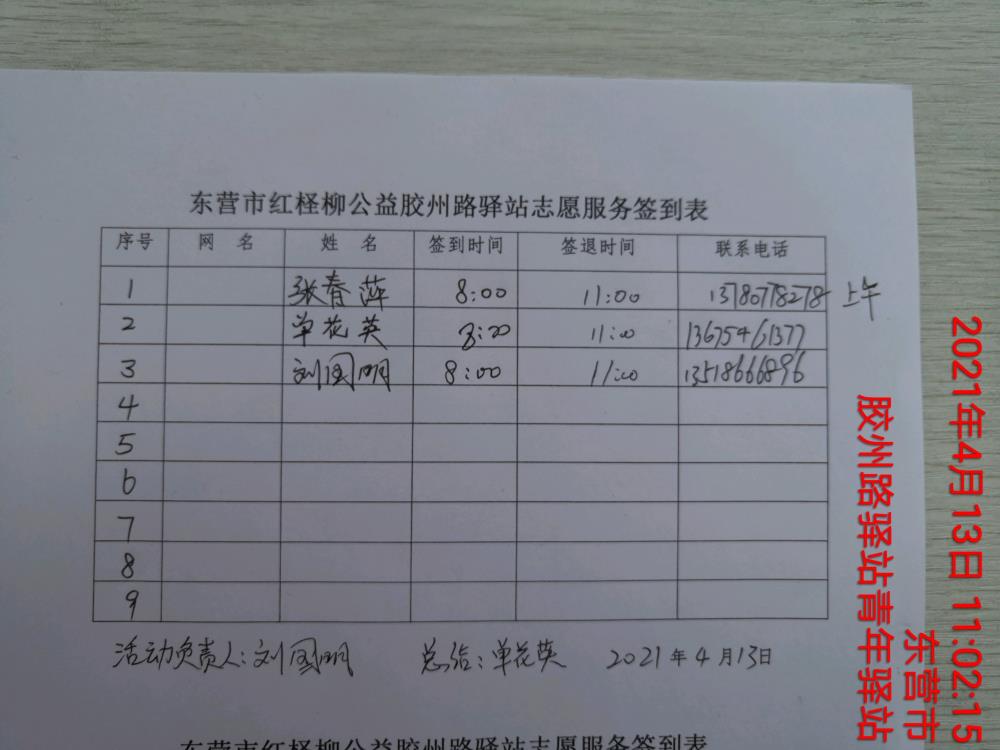 东营市红柽柳公益胶州路驿站志愿服务签到表
序号 网 名 姓 名 签到时间 签退时间 联系电话
1 张春萍 8:00 11:00 13780778278 上午
2 单花英 8:20 11:00 13675461377
3 刘国明 8:00 11:00 13518666896
4
5
6
7
8
9
活动负责人:刘国明 总结:单花英 2021年4月13日
东营市红柽柳公益胶州路驿站志愿服务签到表
2021年4月13日 11:02:15
东营市
胶州路驿站青年驿站